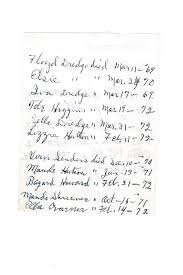 Floyd Dredge died Mar. 11 - 69
Elsie " " Mar. 24 70
Iva Dredge " Mar. 17 - 69
Higgins " Mar 19 - 72
Dredge " Mar. 31 - 72
Lizzra Hutton " Feb. 11 - 72
Vern Sanders died Dec. 10 - 70
Maude Hutton " Jan. 19 - 71
Bayard Howard " Feb. 21 - 72
Maude " Oct. 16 - 71
Ella " Feb. 14 - 72